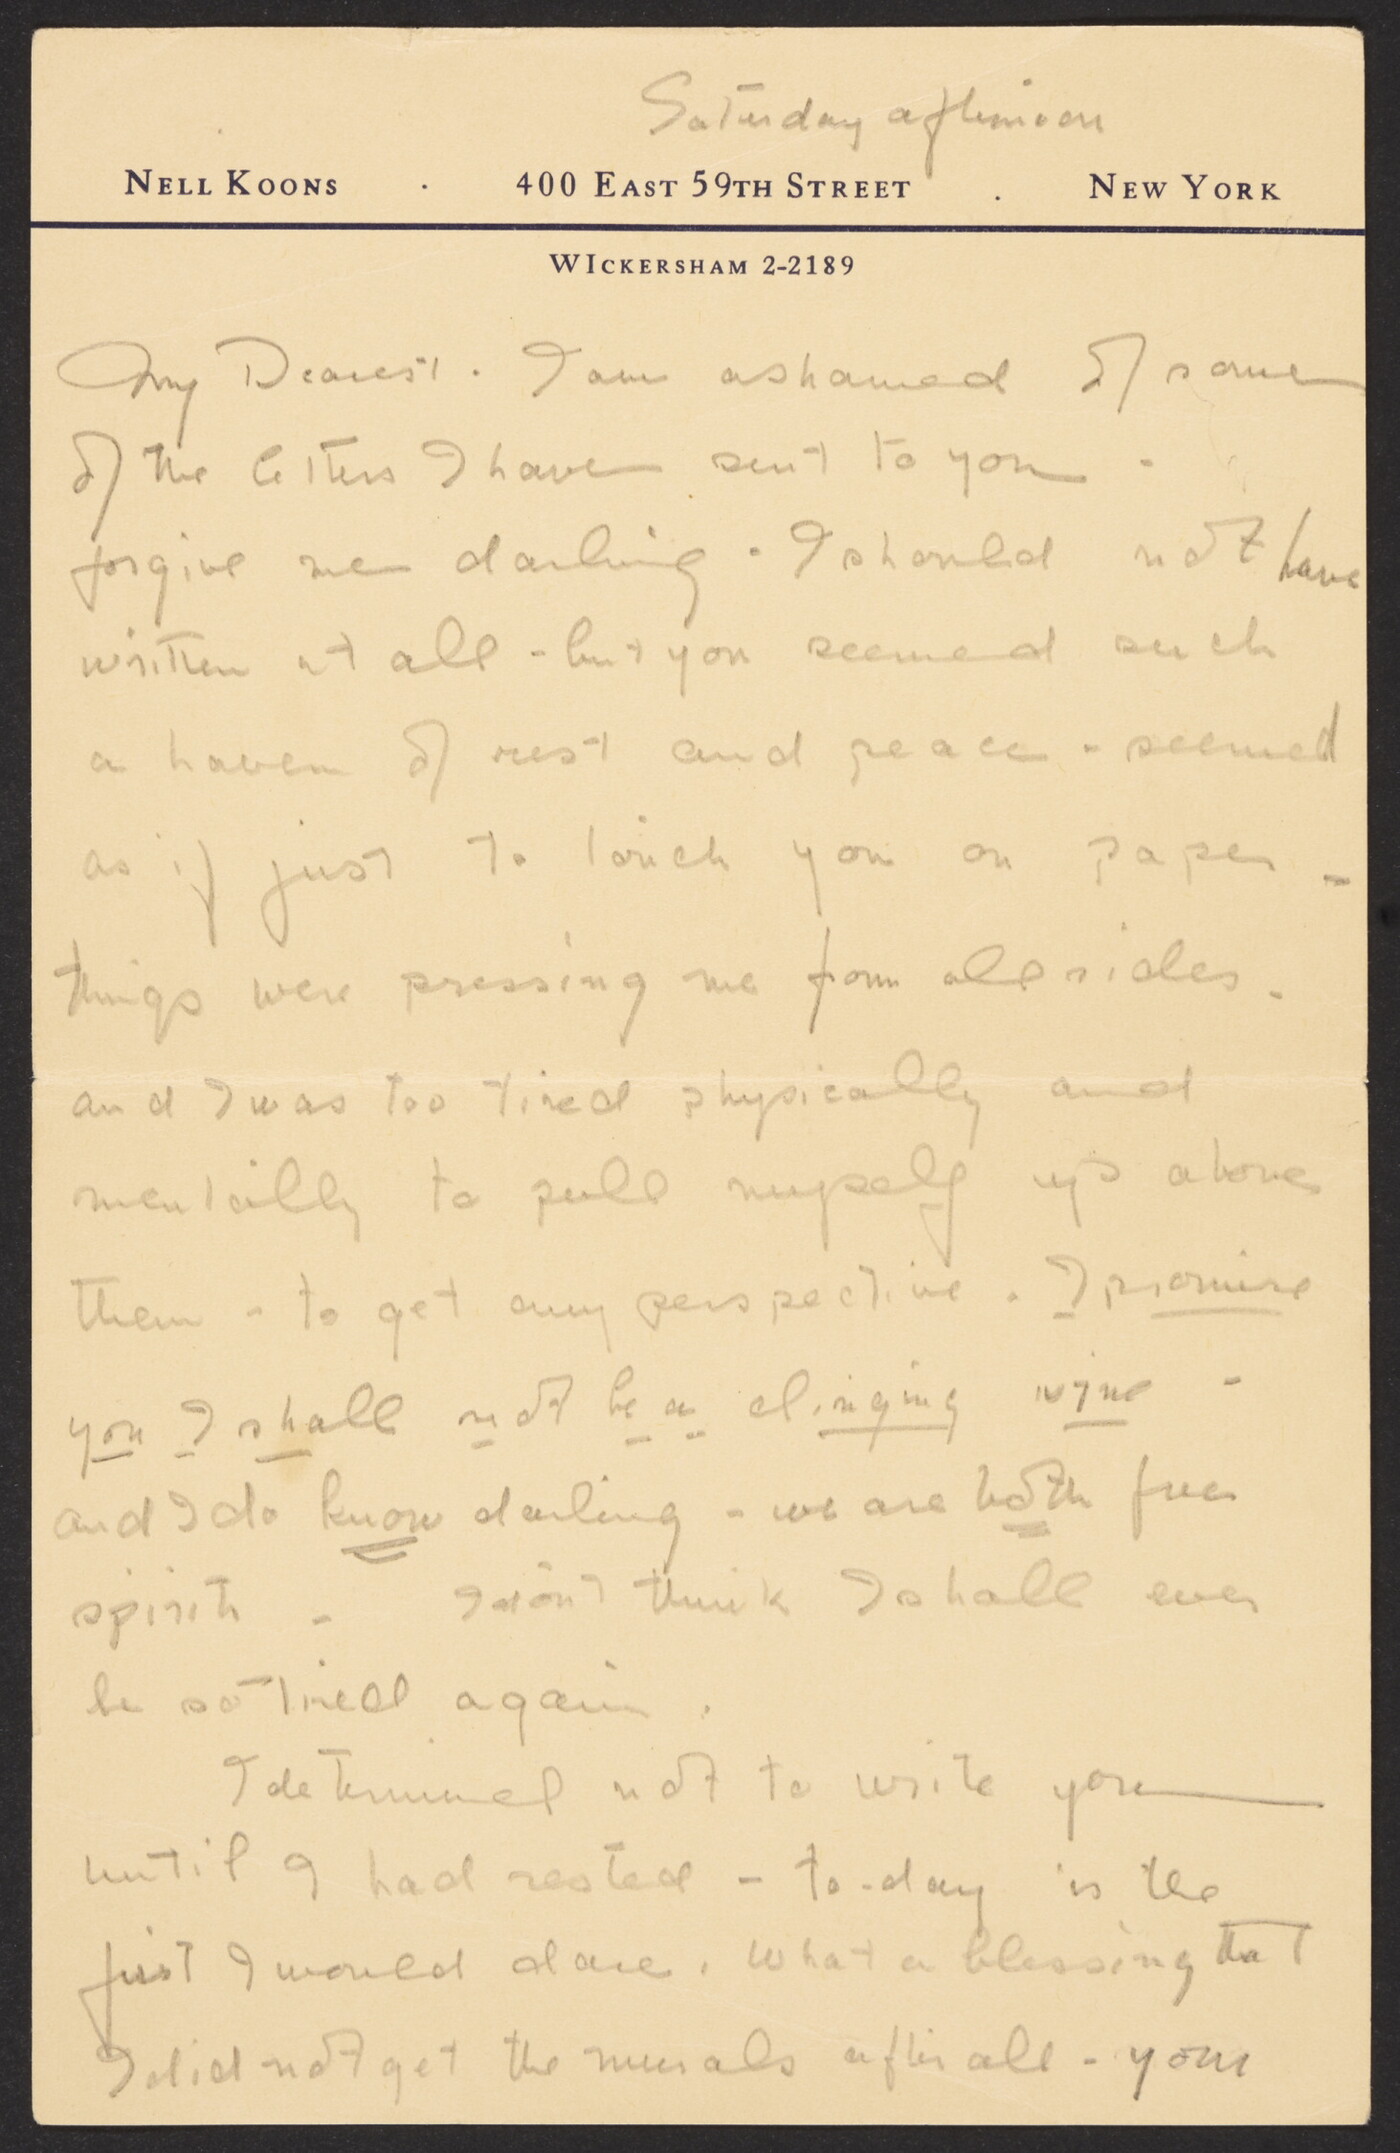 Saturday afternoon
NELL KOONS · 400 EAST 59TH STREET . NEW YORK
WICKERSHAM 2-2189
My Dearest. I am ashamed of some
of the letters I have sent to you -
forgive me darling. I should not have
written at all - but you seemed such
a haven of rest and peace - seemed
as if just to touch you on paper -
things were pressing me from all sides.
and I was too tired physically and
mentally to pull myself up above
them - to get any perspective. I promise
you I shall not be a clinging vine -
and I do know darling - we are both free
spirits - I don't think I shall ever
be so tired again.
I determined not to write you
until I had rested - to-day is the
first I would dare. What a blessing that
I did not get the murals after all - your